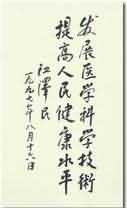 发展医学科学技術
提高人民健康水平
江澤民
一九九七年八月十六日